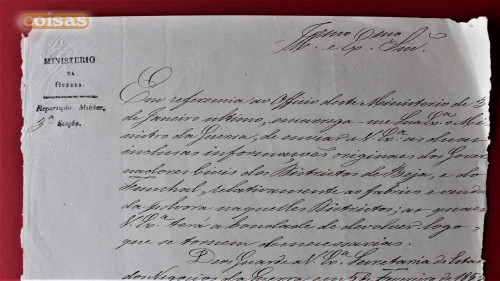 coisas
MINISTERIO
DA
GUERRA
Repartição Militar,
3ª Secção.
Illmo Exmo
Em referencia ao Officio deste Ministerio de 3
de Janeiro ultimo, encarrega-me Sua Exª. o Mi-
nistro da Guerra, de enviar a V. Exª. as duas
inclusas informações originaes dos Gover-
nadores Civis dos Districtos de Beja, e do
Funchal, relativamente ao fabrico e venda
da polvora naquelles Districtos; as quaes
V. Exª. terá a bondade de devolver logo
que se tornem desnecessarias.
Deos Guarde a V. Exª. Secretaria de Estado
dos Negocios da Guerra em 5 de Fevereiro de